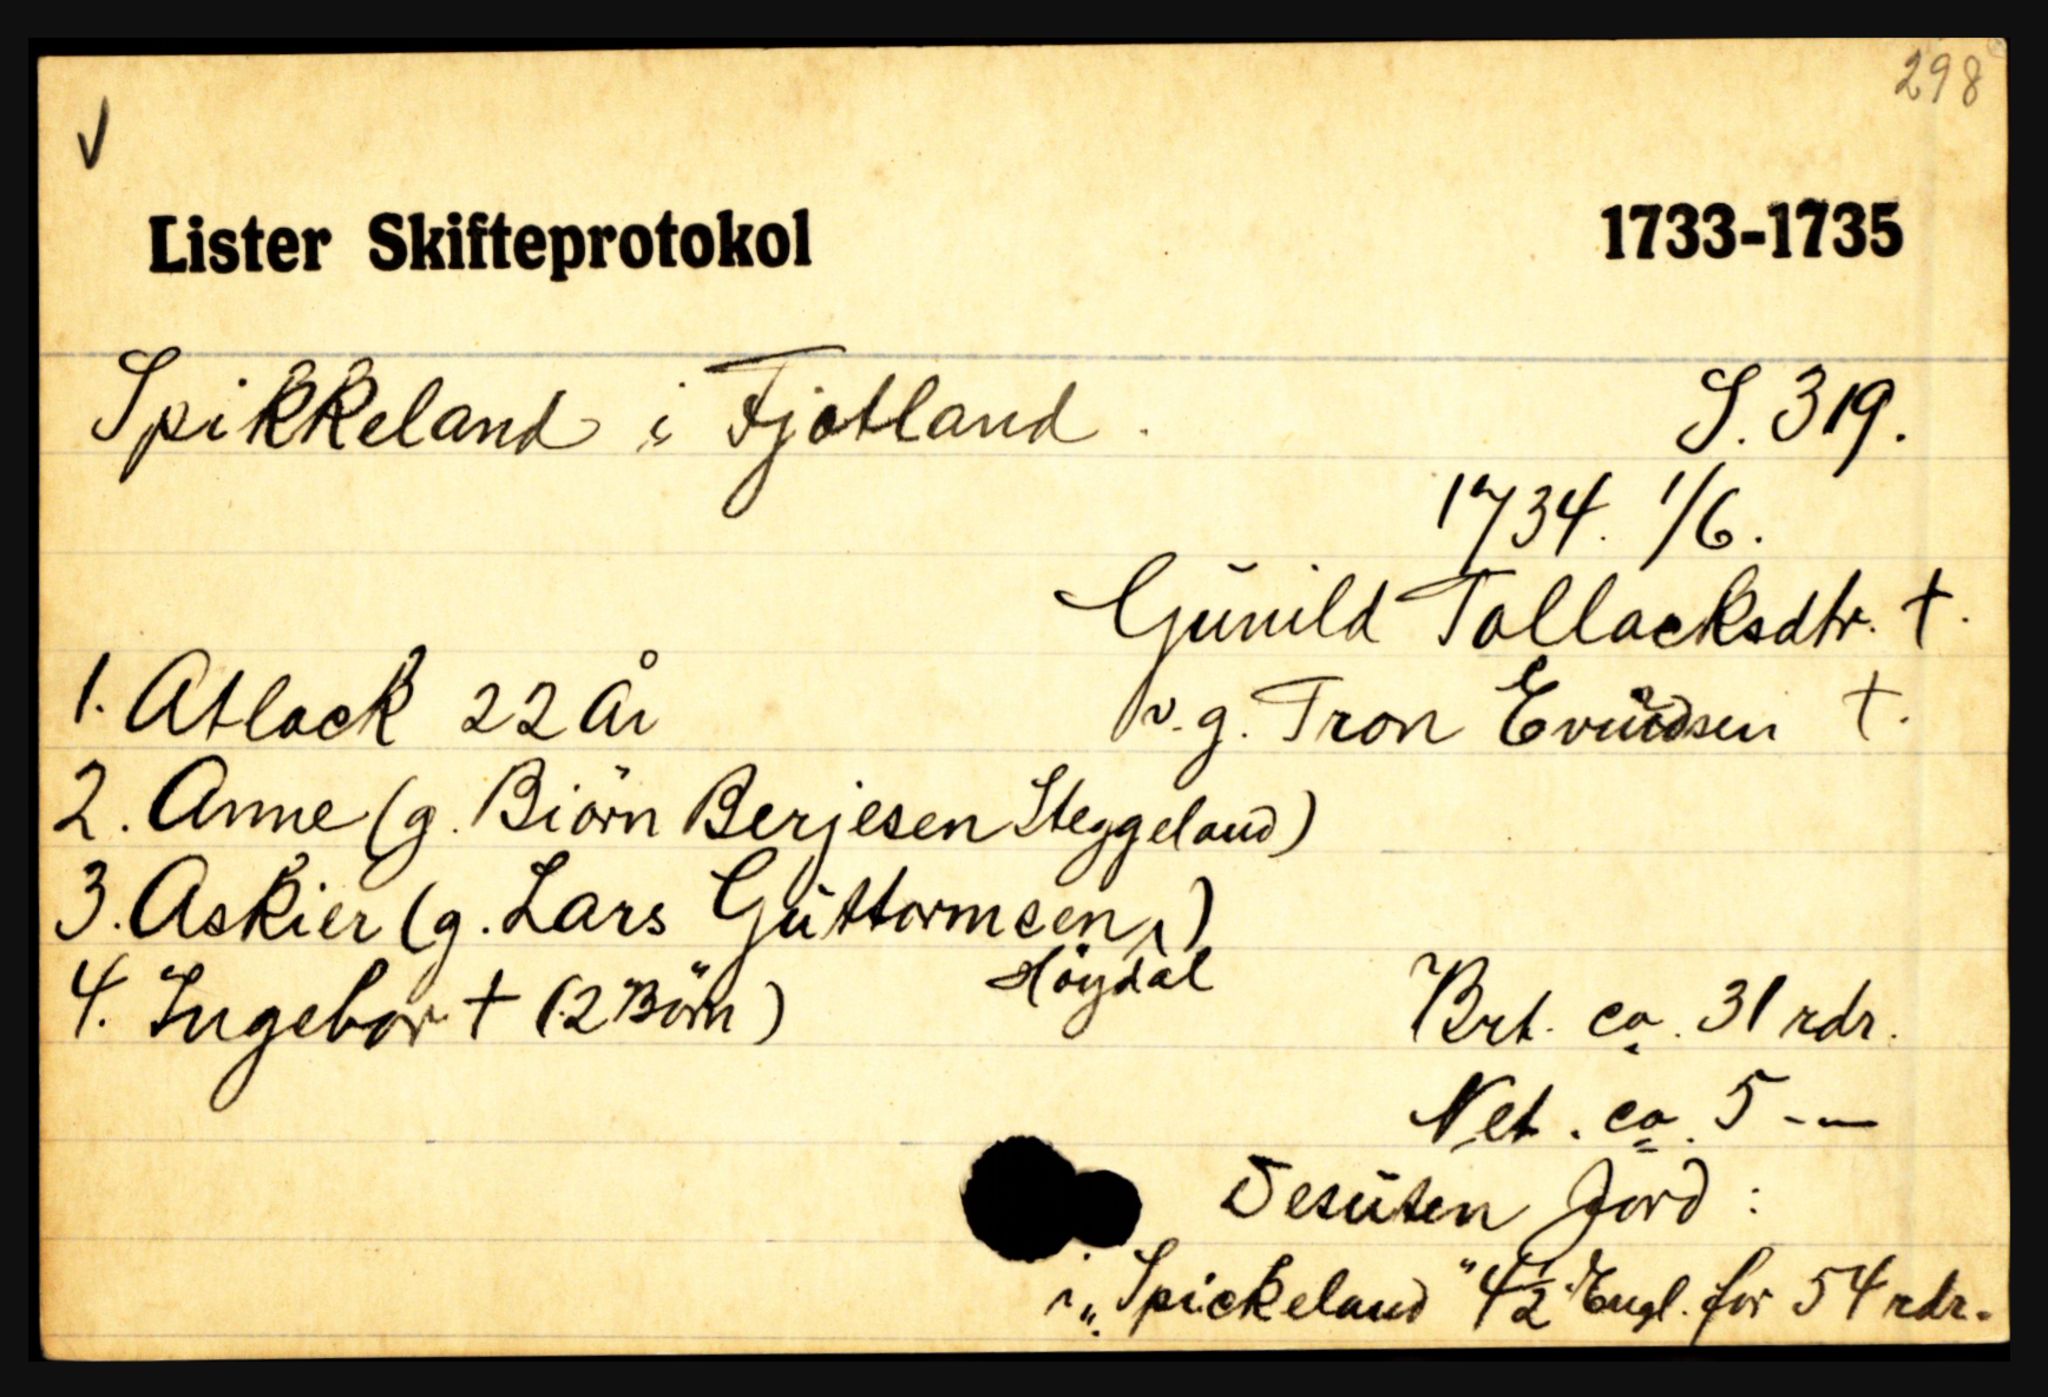 298
√
Lister Skifteprotokol 1733-1735
Spikkeland i Fjotland. S. 319.
1734. 1/6.
Gúnild Tollacksdtr. †.
1. Atlack 22 År v. g. Tron Evúndsen †.
2. Anne (g. Biörn Berjesen Steggeland)
3. Askier (g. Lars Gúttormsen,)
Höydal
4. Ingebor † (2 Börn) Brt. ca. 31 rdr.
Net. ca. 5 -—
Desúten Jord:
i „Spickeland" 4½ Engl. for 54 rdr.